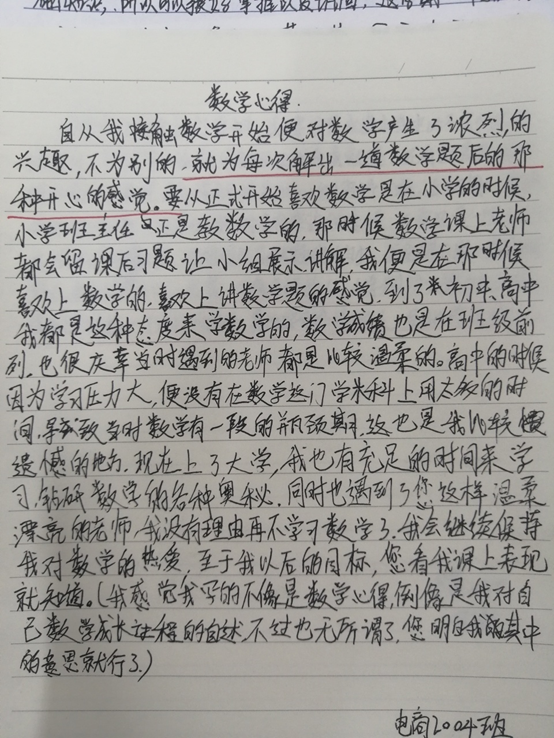 数学心得.
自从我接触数学开始便对数学产生了浓烈的
兴趣,不为别的.就为每次解出一道数学题后的那
种开心的感觉。要从正式开始喜欢数学是在小学的时候,
小学班主任正是教数学的,那时候数学课上老师
都会留课后习题让小组展示讲解,我便是在那时候
喜欢上数学的.喜欢上讲数学题的感觉.到了初中、高中
我都是这种态度来学数学的,数学成绩也是在班级前
列.也很庆幸当时遇到的老师都是比较温柔的。高中的时候
因为学习压力大,便没有在数学这门学科上用太多的时
间.导致当时数学有一段的瓶颈期.这也是我比较
遗憾的地方.现在上了大学,我也有充足的时间来学
习.钻研数学的各种奥秘.同时也遇到了您这样温柔
漂亮的老师.我没有理由再不学习数学了.我会继续保持
我对数学的热爱,至于我以后的目标,您看我课上表现
就知道。(我感觉我写的不像是数学心得,倒像是我对自
己数学成长过程的自述.不过也无所谓了,您明白我的其中
的意思就行了.)
电商2004班